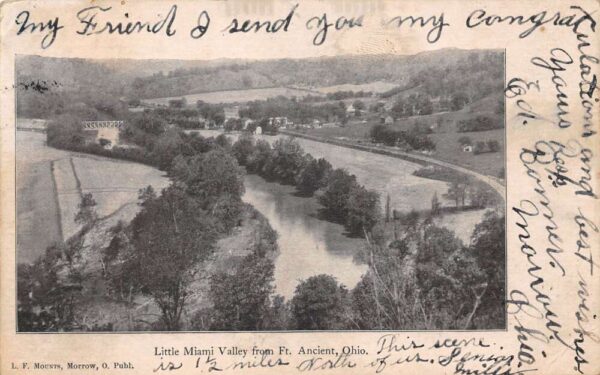 My Friend I send you my Congratulations and best wishes
Yours Resp
Ed. Bonner.
Morrow, Ohio.
Little Miami Valley from Ft. Ancient, Ohio.
This scene
is 1½ miles North of us.
L. F. Mounts, Morrow, O. Publ.